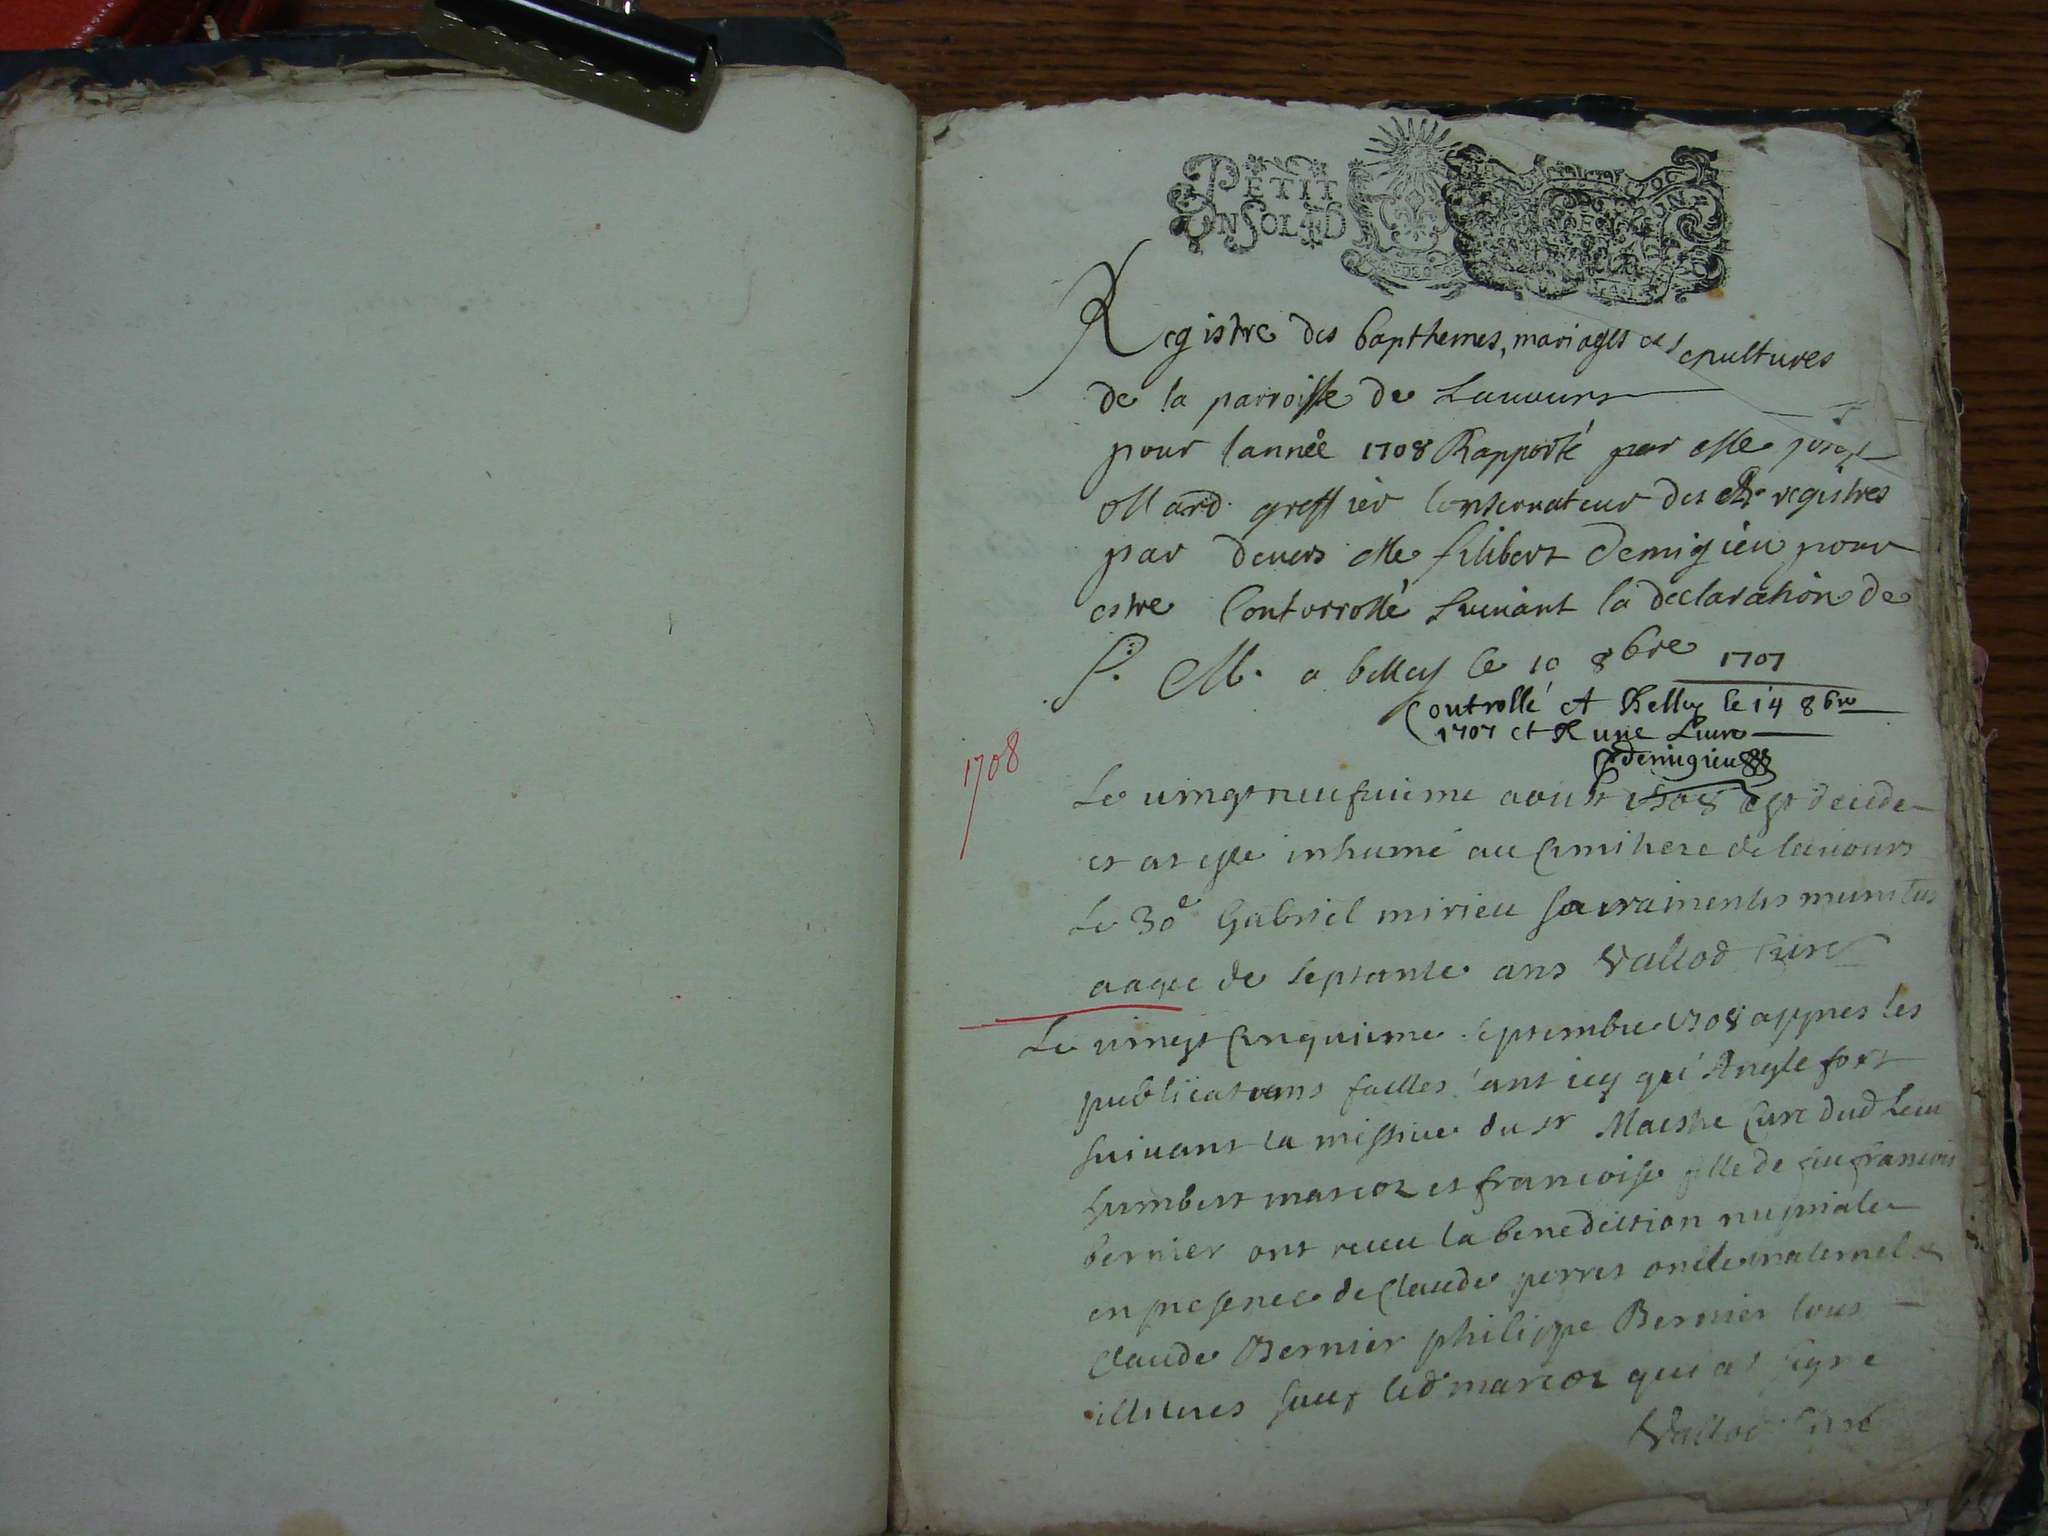 PETIT
UN SOL 4 D
Registre des bapthemes, mariages et sepultures
de la parroisse de Lauours
pour lannéé 1708 Rapporté par Me
greffier Conseruateur des registres
par deuers Me filibert Demigieu pour
estre Contorrollé suiuant la declaration de
S. M. a belley le 10 8bre 1707
Controllé A Belley le 14 8bre
1707 et R une Liure
Demigieu
1708
Le uingt neufuieme aoust 1708 est decede
et at este inhumé au Cimitiere de lauours
Le 30e Gabriel mirieu sacramentis munitus
aagee de septante ans Vallod Curé
Le uingt Cinquieme septembre 1708 appres les
publications faittes tant icy qu'Anglefort
suiuant la missiue du sr Maistre Curé dud Lieu
humbert marcoz et francoise fille de feu francois
bernier ont receu la benediction nuptiale
en presence de Claude perret oncle maternel et
Claude Bernier philippe Bernier tous
illiteres sauf led marcoz qui at signe
Vallod Curé